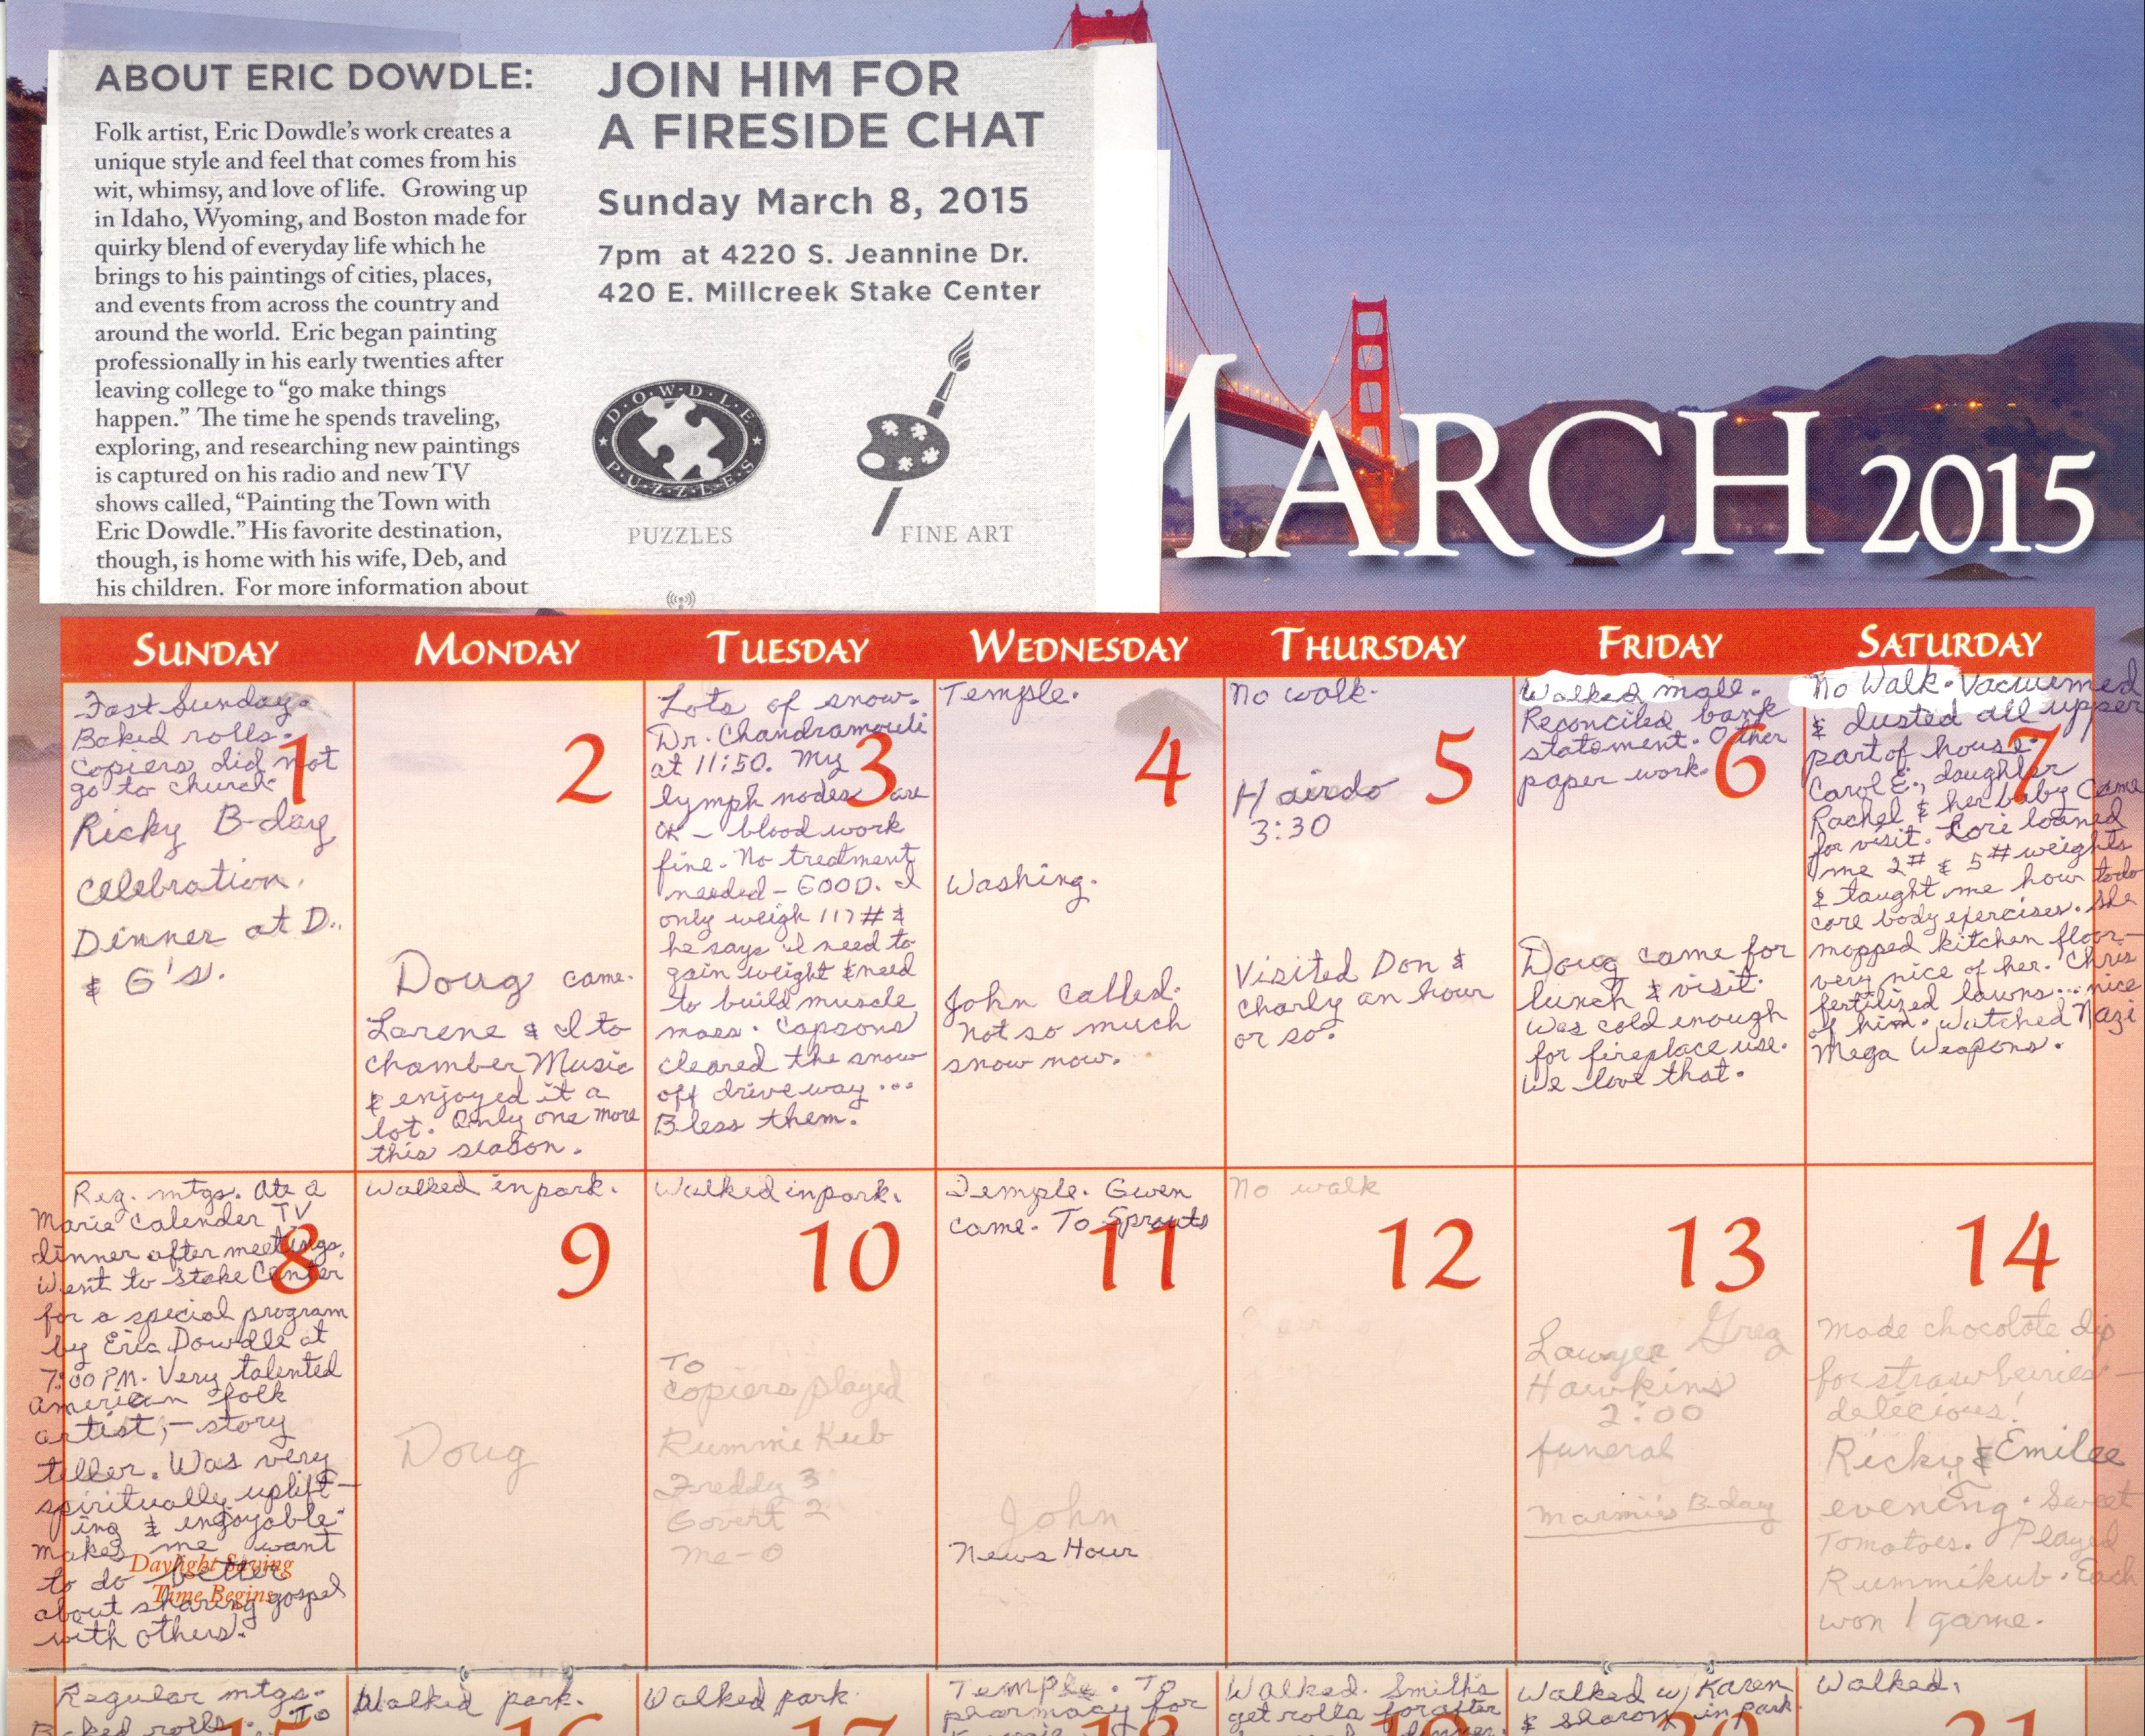 ABOUT ERIC DOWDLE:
Folk artist, Eric Dowdle's work creates a
unique style and feel that comes from his
wit, whimsy, and love of life. Growing up
in Idaho, Wyoming, and Boston made for
quirky blend of everyday life which he
brings to his paintings of cities, places,
and events from across the country and
around the world. Eric began painting
professionally in his early twenties after
leaving college to “go make things
happen.” The time he spends traveling,
exploring, and researching new paintings
is captured on his radio and new TV
shows called, “Painting the Town with
Eric Dowdle.” His favorite destination,
though, is home with his wife, Deb, and
his children. For more information about
JOIN HIM FOR
A FIRESIDE CHAT
Sunday March 8, 2015
7pm at 4220 S. Jeannine Dr.
420 E. Millcreek Stake Center
DOWDLE
PUZZLES
PUZZLES
FINE ART
MARCH 2015
SUNDAY
MONDAY
TUESDAY
WEDNESDAY
THURSDAY
FRIDAY
SATURDAY
1
Fast Sunday.
Baked rolls.
Copiers did not
go to church.
Ricky B-day
Celebration.
Dinner at D.
& G's.
2
Doug came.
Larene & I to
Chamber Music
& enjoyed it a
lot. Only one more
this season.
3
Lots of snow.
Dr. Chandramouli
at 11:50. My
lymph nodes are
OK – blood work
fine. No treatment
needed – GOOD. I
only weigh 117# &
he says I need to
gain weight & need
to build muscle
mass. Capsons
cleared the snow
off driveway ...
Bless them.
4
Temple.
Washing.
John called.
Not so much
snow now.
5
No walk.
Hairdo
3:30
Visited Don &
Charly an hour
or so.
6
Walked mall.
Reconciled bank
statement. Other
paper work.
Doug came for
lunch & visit.
Was cold enough
for fireplace use.
We love that.
7
No Walk. Vacuumed
& dusted all upper
part of house.
Carol E., daughter
Rachel & her baby came
for visit. Lori loaned
me 2# & 5# weights
& taught me how to do
core body exercises. She
mopped kitchen floor –
very nice of her. Chris
fertilized lawns ... nice
of him. Watched Nazi
Mega Weapons.
8
Reg. mtgs. Ate a
Marie Calender TV
dinner after meetings.
Went to Stake Center
for a special program
by Eric Dowdle at
7:00 PM. Very talented
American folk
artist, – story
teller. Was very
spiritually uplift-
ing & enjoyable.
Makes me want
to do better
about sharing gospel
with others.
Daylight Saving
Time Begins
9
Walked in park.
Doug
10
Walked in park.
To
Copiers played
Rummi Kub
Freddy 3
Govert 2
me – 0
11
Temple. Gwen
came. To Sprouts
John
News Hour
12
No walk
13
Lawyer Greg
Hawkins
2:00
funeral
Marmie's B-day
14
Made chocolate dip
for strawberries –
delicious!
Ricky & Emilee
evening. Sweet
Tomatoes. Played
Rummikub. Each
won 1 game.
Regular mtgs.
Baked rolls. To
15
Walked park.
16
Walked park
17
Temple. To
pharmacy for
18
Walked. Smith's
get rolls for after
Walked w/ Karen
& Sharon in park.
20
Walked.
21